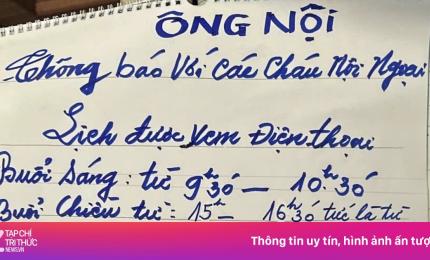 ÔNG NỘI
Thông báo Với các Cháu Nội Ngoại
Lịch được Xem Điện thoại
Buổi Sáng: từ 9h30' – 10h30'
Buổi Chiều từ: 15h – 16h30' tức là từ
TẠP CHÍ
TRI THỨC
NEWS.VN
Thông tin uy tín, hình ảnh ấn tượ